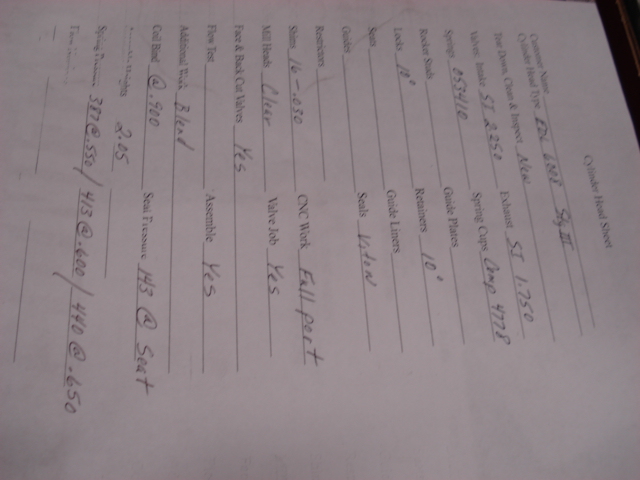 Cylinder Head Sheet
Customer Name
Cylinder Head Type EDL 6N8 Stg III
Tear Down, Clean & Inspect New
Valves: Intake SI 2.250 Exhaust SI 1.750
Springs 053410 Spring Cups Comp 4778
Rocker Studs Guide Plates
Locks 10° Retainers 10°
Seats Guide Liners
Guides Seals Viton
Resurfaces
Shims 16-.030 CNC Work Full port
Mill Heads Clear Valve Job Yes
Face & Back Cut Valves Yes
Flow Test Assemble Yes
Additional Work Blend
Coil Bind @ .900 Seat Pressure 143 @ Seat
Heights 2.05
Spring Pressure 387@.550 / 413@.600 / 440@.650